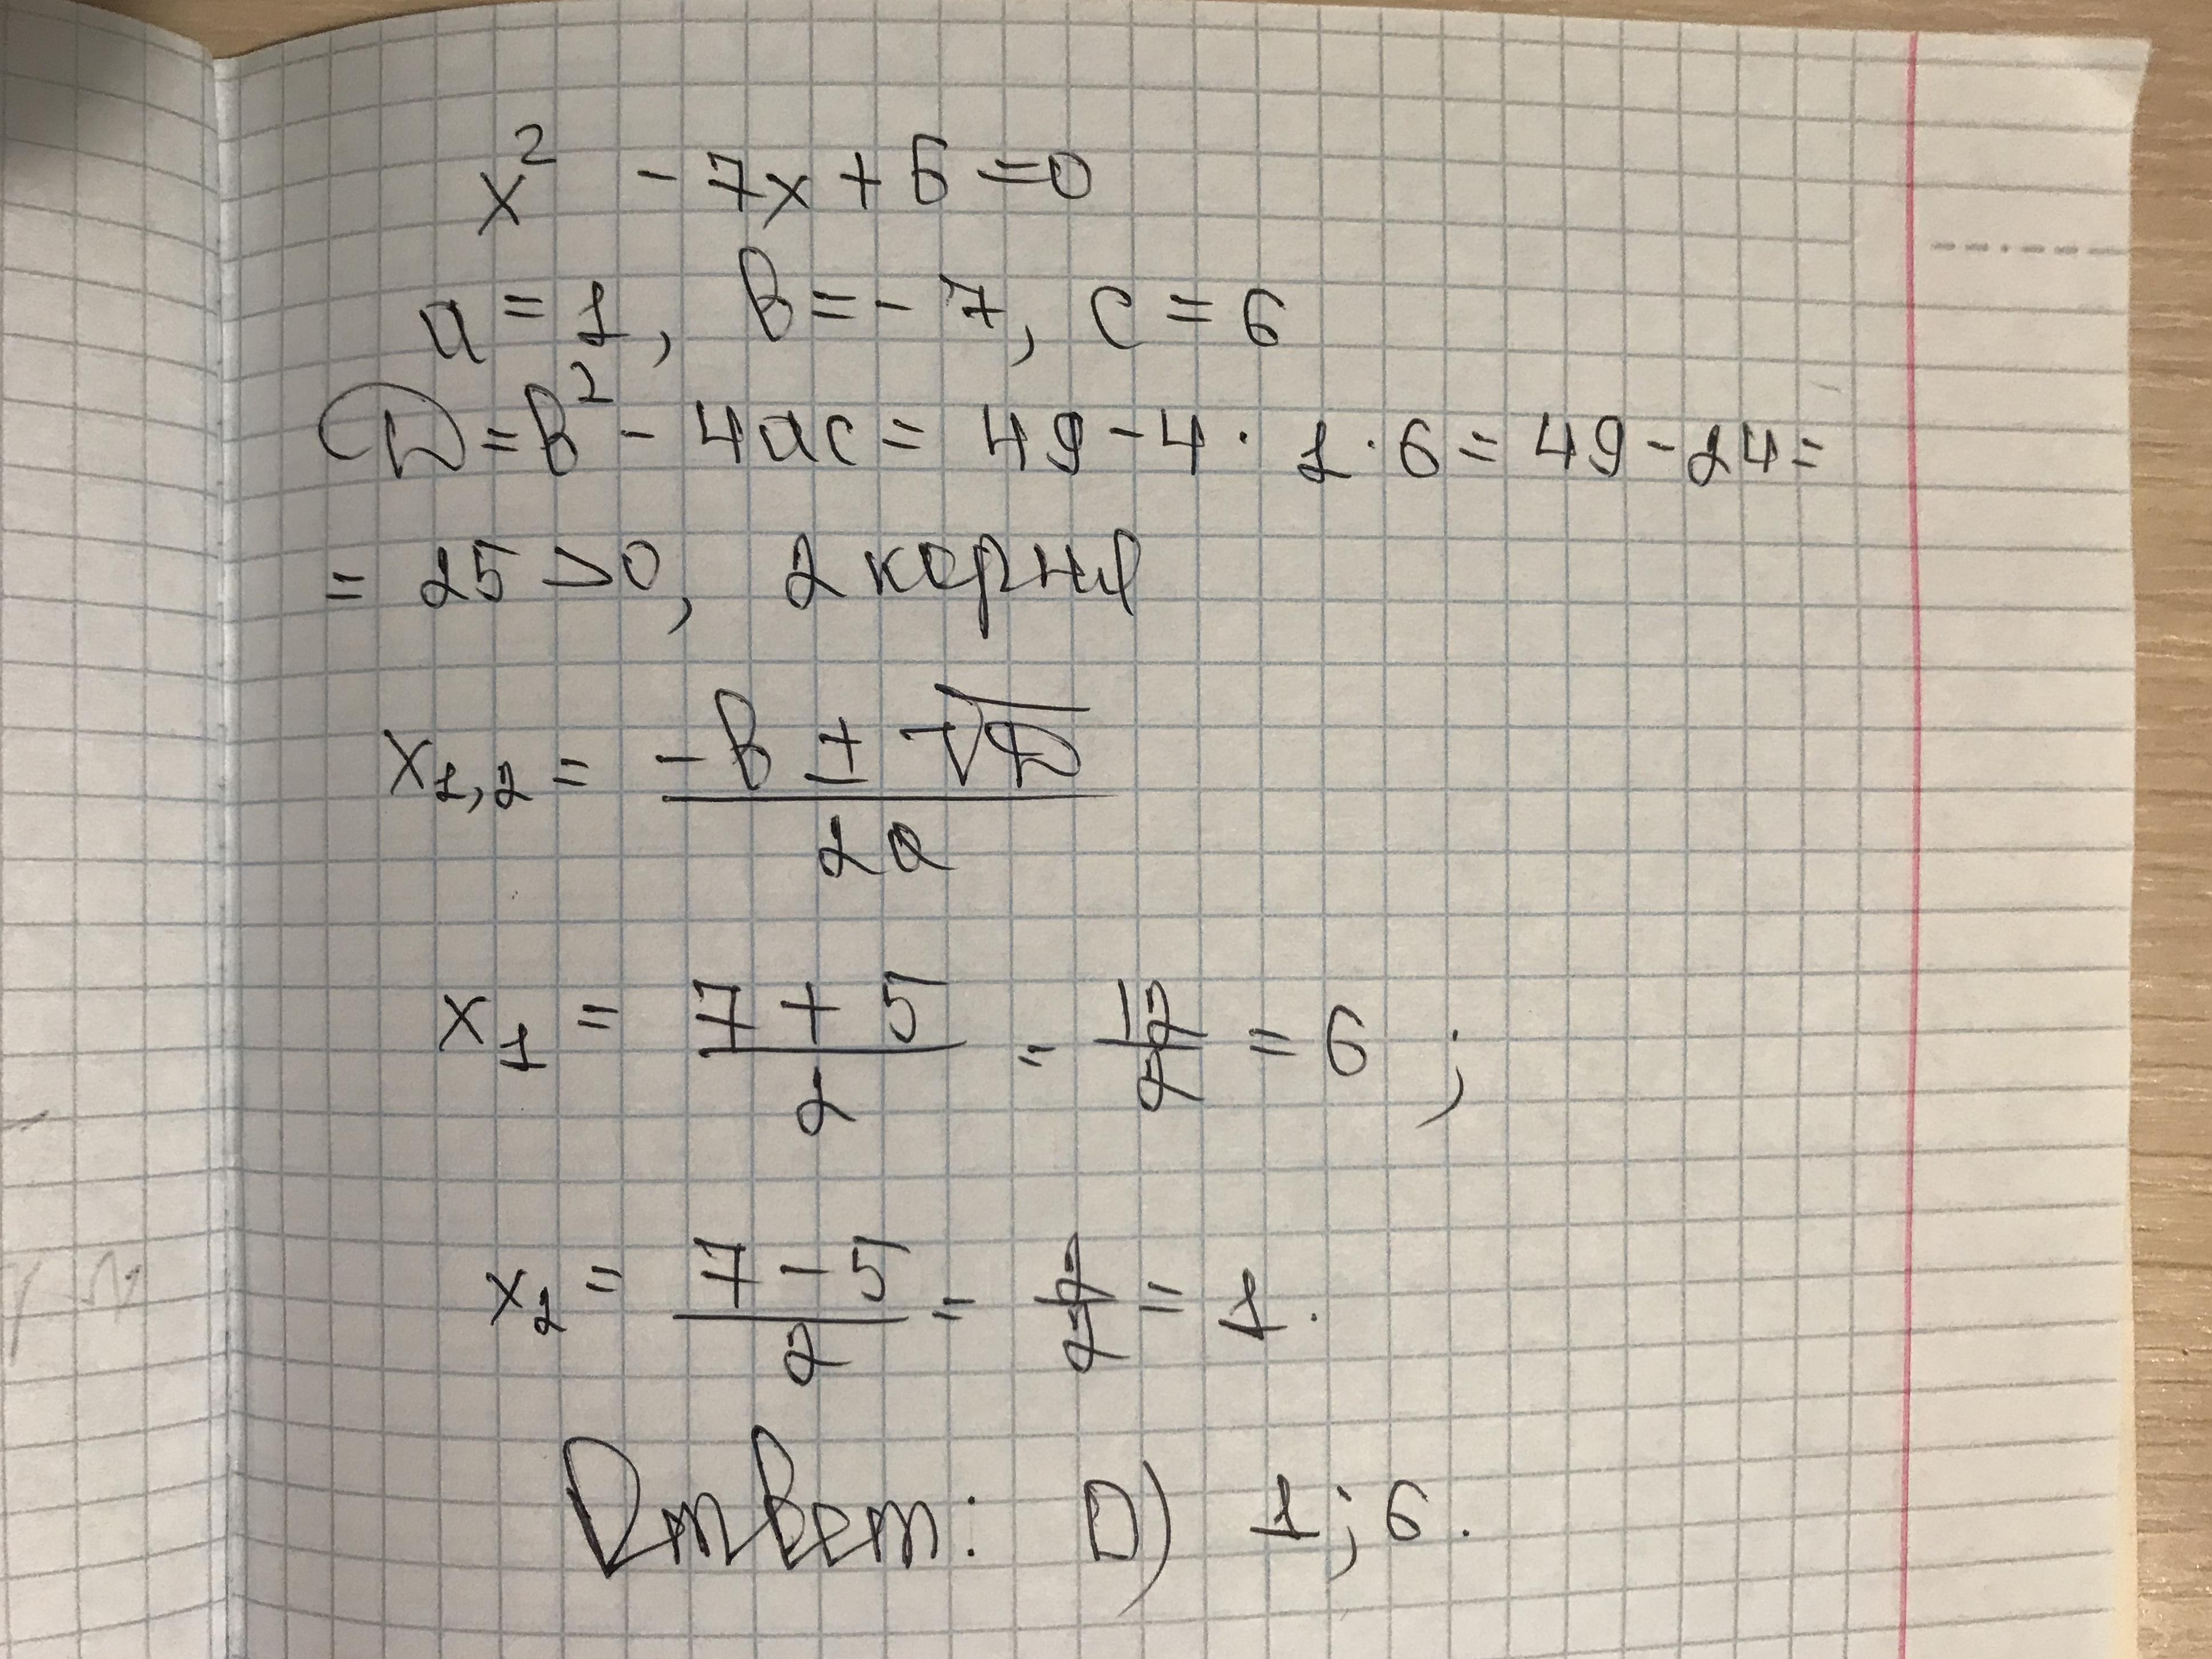 x² - 7x + 6 = 0
a = 1, b = - 7, c = 6
D = b² - 4ac = 49 - 4 · 1 · 6 = 49 - 24 =
= 25 > 0, 2 корня
x₁,₂ = (-b ± √D) / 2a
x₁ = (7 + 5) / 2 = 12/2 = 6 ;
x₂ = (7 - 5) / 2 = 2/2 = 1.
Ответ: D) 1; 6.